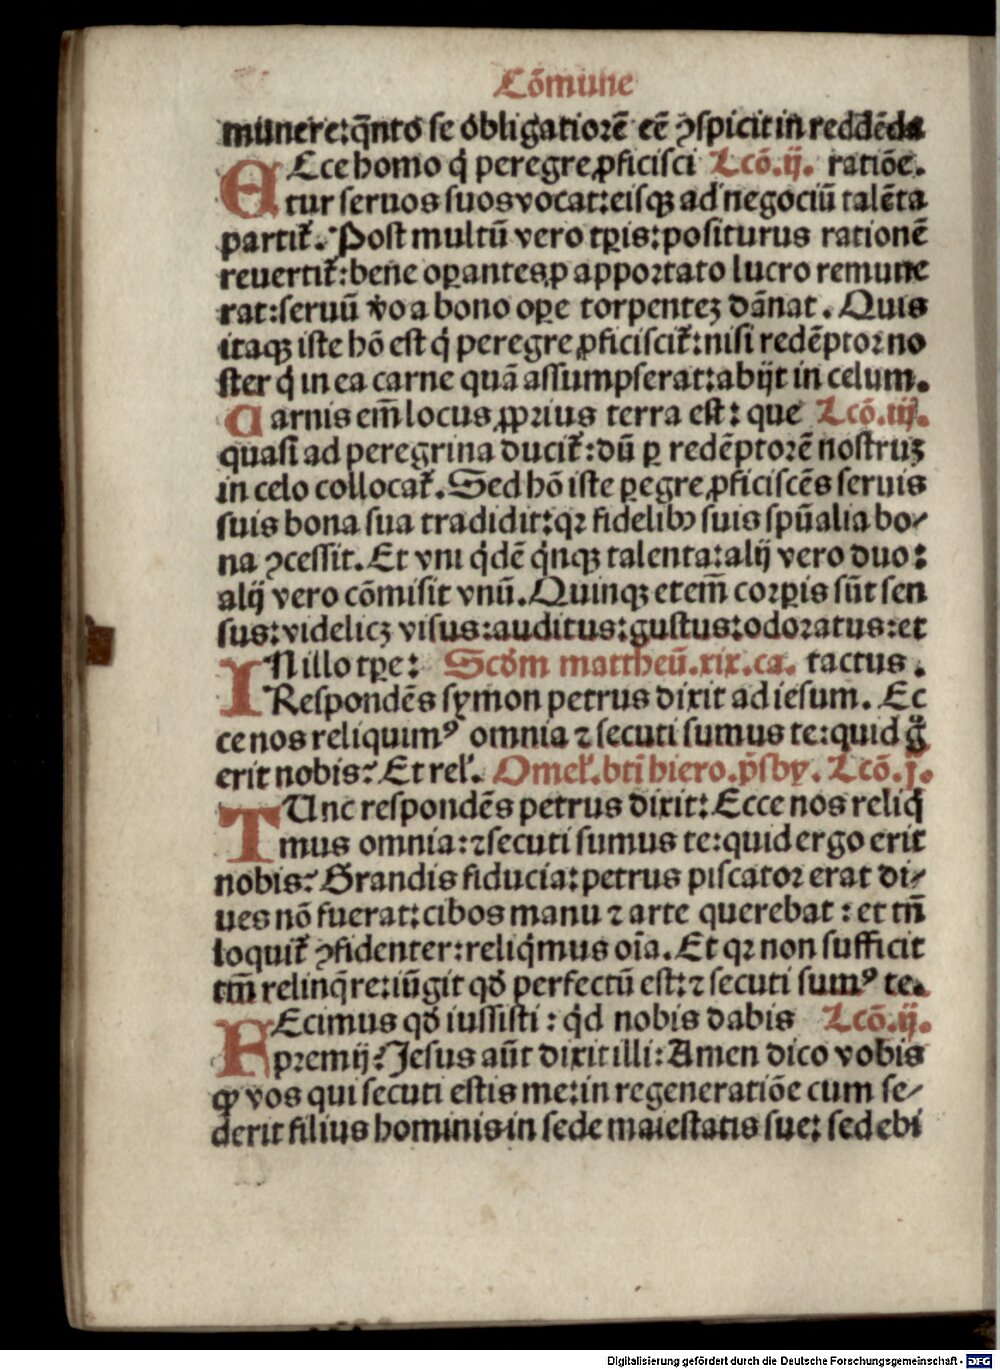 Cōmune
munere:q̄nto se obligatiorē eē ꝯspicit in reddēda
Ecce homo q̇ peregre ꝓficisci Lcō.ij. ratiōe.
tur seruos suos vocat:eisqꝫ ad negociū talēta
partit᷑. Post multū vero tꝑis:positurus rationē
reuertit᷑:bene oꝑantes ꝓ apportato lucro remune
rat:seruū v̊o a bono oꝑe torpentez dānat. Quis
itaqꝫ iste hō est q̇ peregre ꝓficiscit᷑:nisi redēptor no
ster q̇ in ea carne quā assumpserat:abijt in celum.
Carnis em̄ locus ꝓprius terra est: que Lcō.iij.
quasi ad peregrina ducit᷑:dū ꝑ redēptorē nostruꝫ
in celo collocat᷑. Sed hō iste ꝑegre ꝓficiscēs seruis
suis bona sua tradidit:qꝛ fidelibꝰ suis spūalia bo⸗
na ꝯcessit. Et vni q̇dē q̇nqꝫ talenta:alij vero duo:
alij vero cōmisit vnū. Quinqꝫ etem̄ corꝑis sūt sen
sus:videlicꝫ visus:auditus:gustus:odoratus:et
IN illo tꝑe: Scd̄m mattheū.xix.ca. tactus.
Respondēs symon petrus dixit ad iesum. Ec
ce nos reliquimꝰ omnia ⁊ secuti sumus te:quid g̊
erit nobis? Et rel̓. Omel̓.bti̅ hiero.p̄sby. Lcō.j.
TUnc respondēs petrus dixit: Ecce nos reliq̇
mus omnia:⁊ secuti sumus te:quid ergo erit
nobis? Grandis fiducia:petrus piscator erat di⸗
ues nō fuerat:cibos manu ⁊ arte querebat: et tn̄
loquit᷑ ꝯfidenter:reliq̇mus oīa. Et qꝛ non sufficit
tm̄ relinq̄re:iūgit qd̓ perfectū est:⁊ secuti sumꝰ te.
FEcimus qd̓ iussisti: q̇d nobis dabis Lcō.ij.
premij? Jesus aūt dixit illi: Amen dico vobis
ꝙ vos qui secuti estis me:in regeneratiōe cum se⸗
derit filius hominis in sede maiestatis sue: sedebi
Digitalisierung gefördert durch die Deutsche Forschungsgemeinschaft - DFG